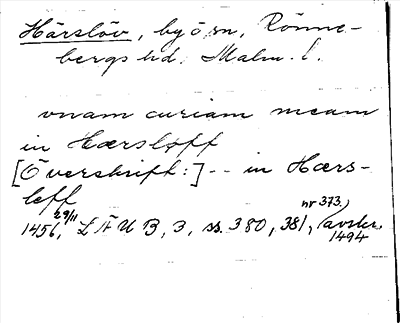 Härslöv, by ö sn, Rönne-
bergs hd. Malm. l.
vnam curiam meam
in Hærsløff
[Överskrift:] -- in Hærs-
leff
1456, 29/11 LÄUB, 3, ss. 380, 381, nr 373. (avskr. 1494